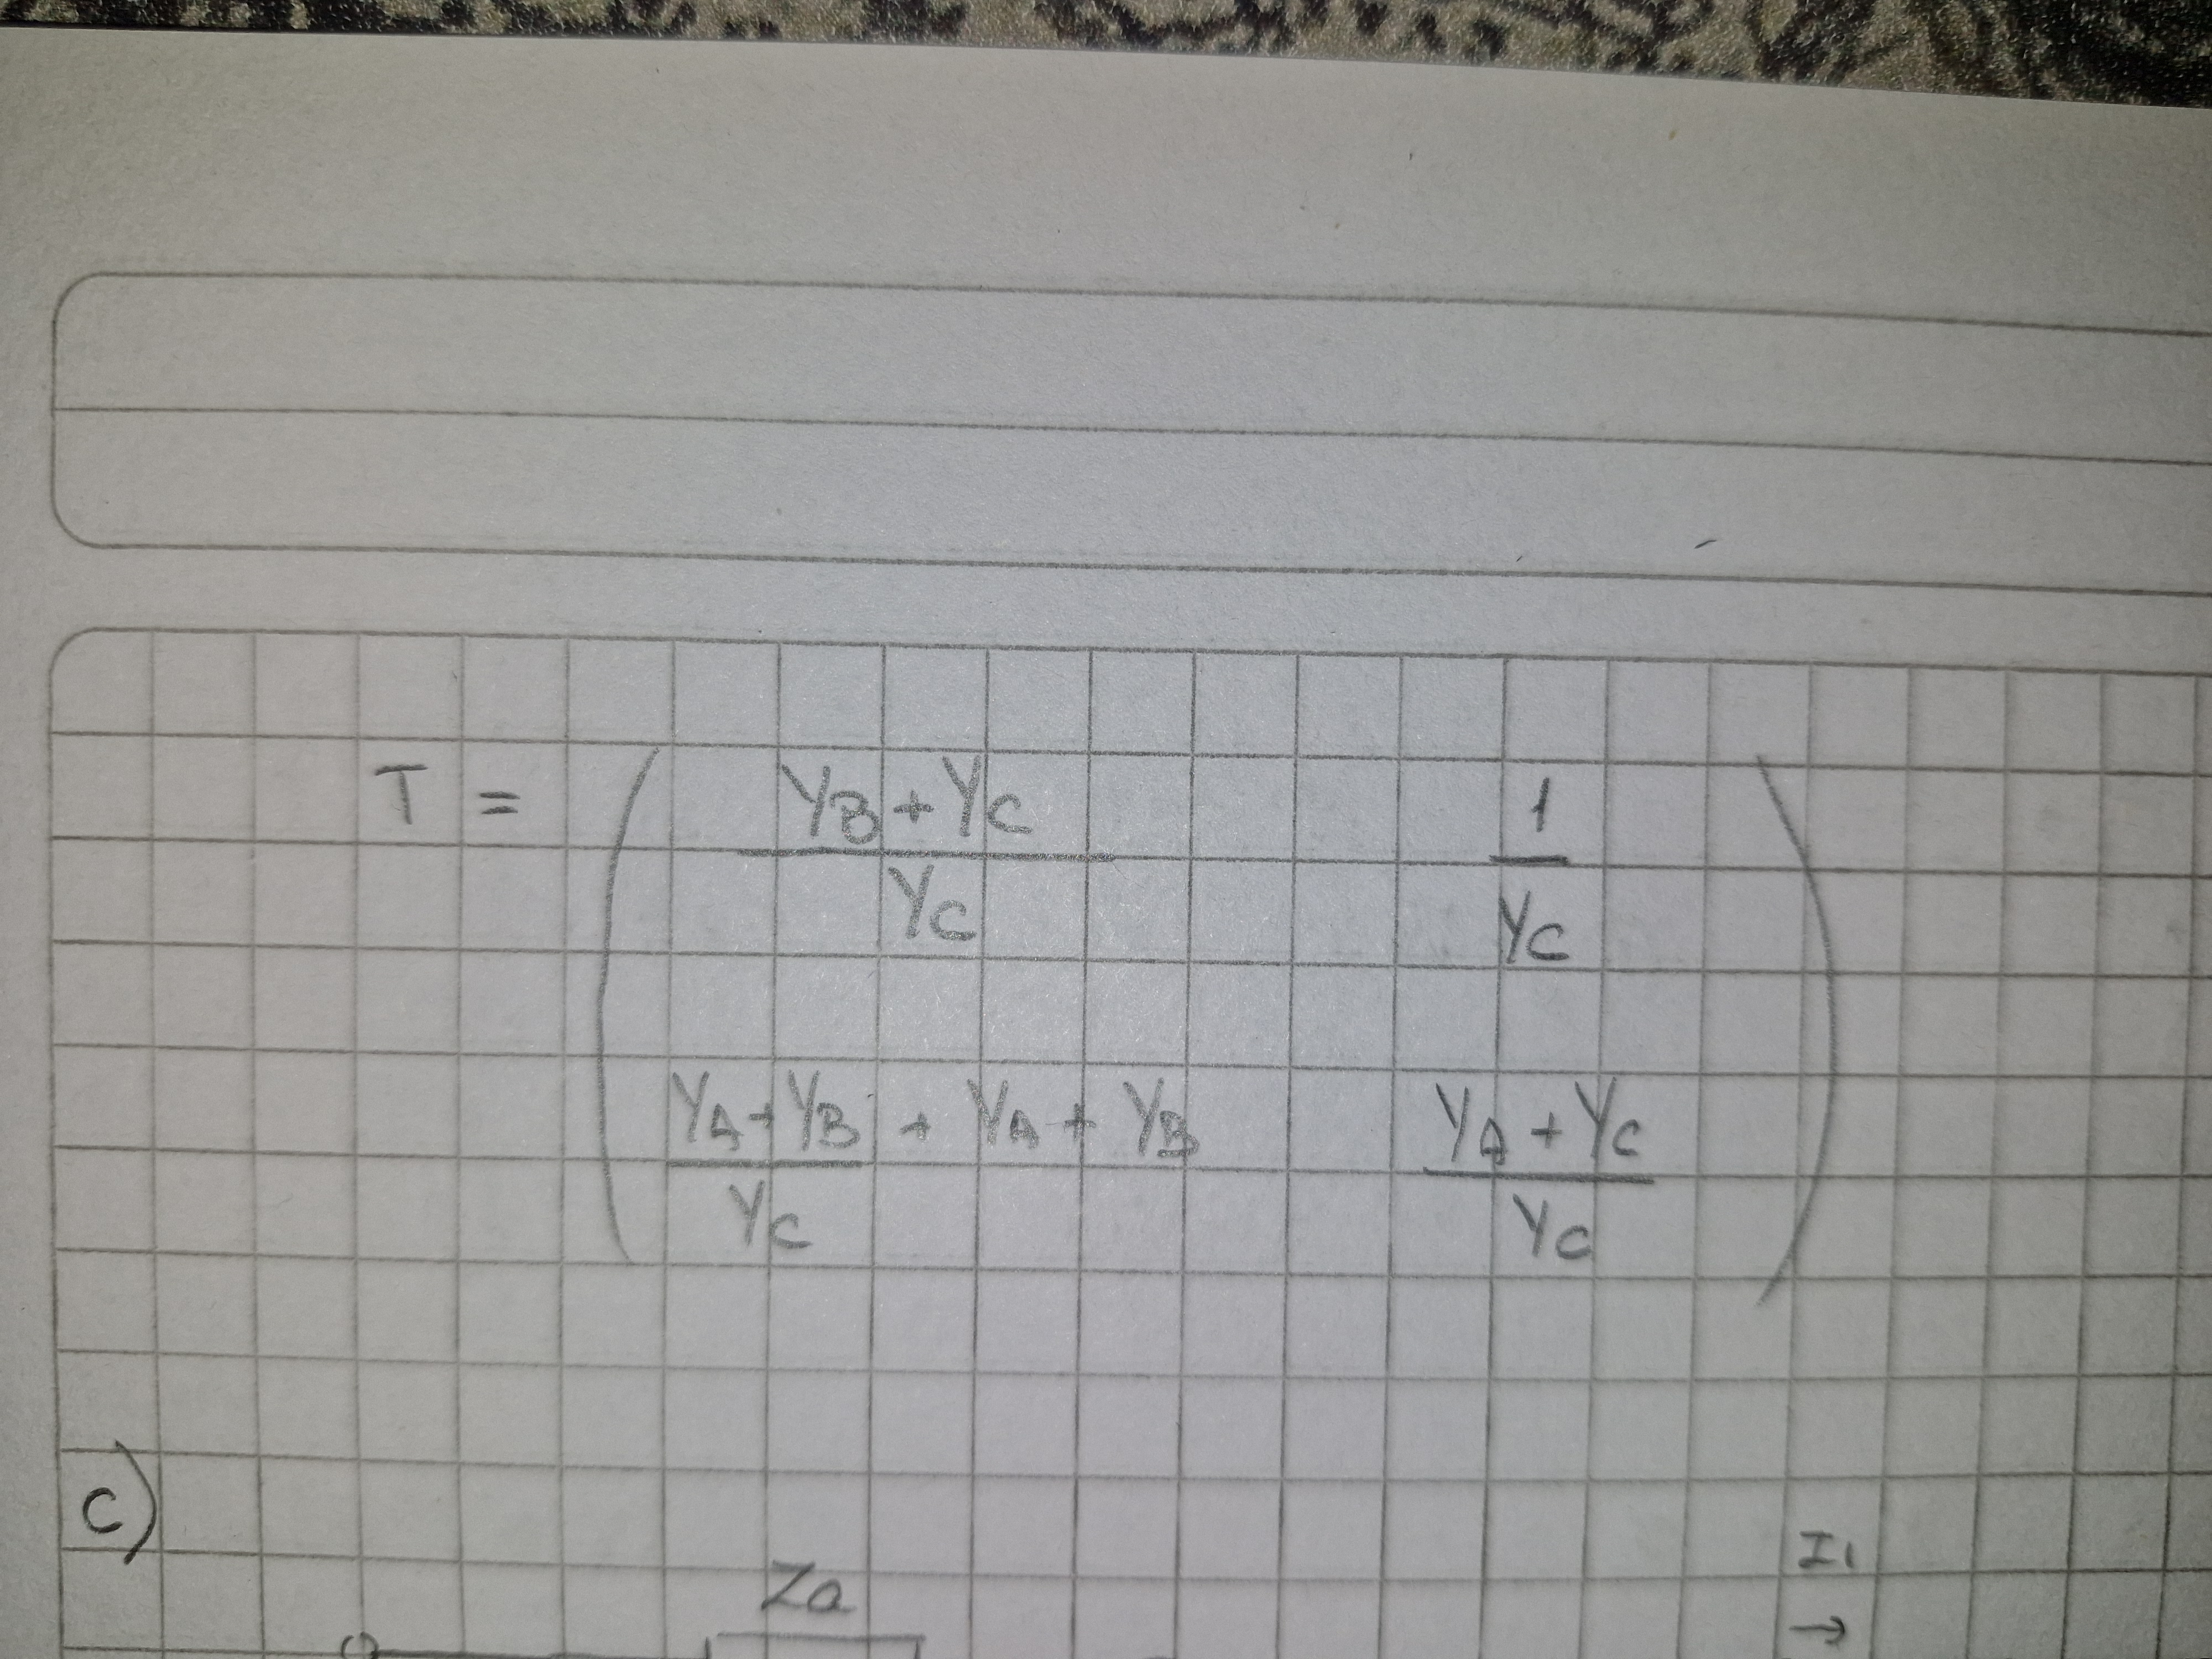 T = ( (YB + YC)/YC    1/YC )
( (YA + YB)/YC + YA + YB    (YA + YC)/YC )
c)
I1
→
Za